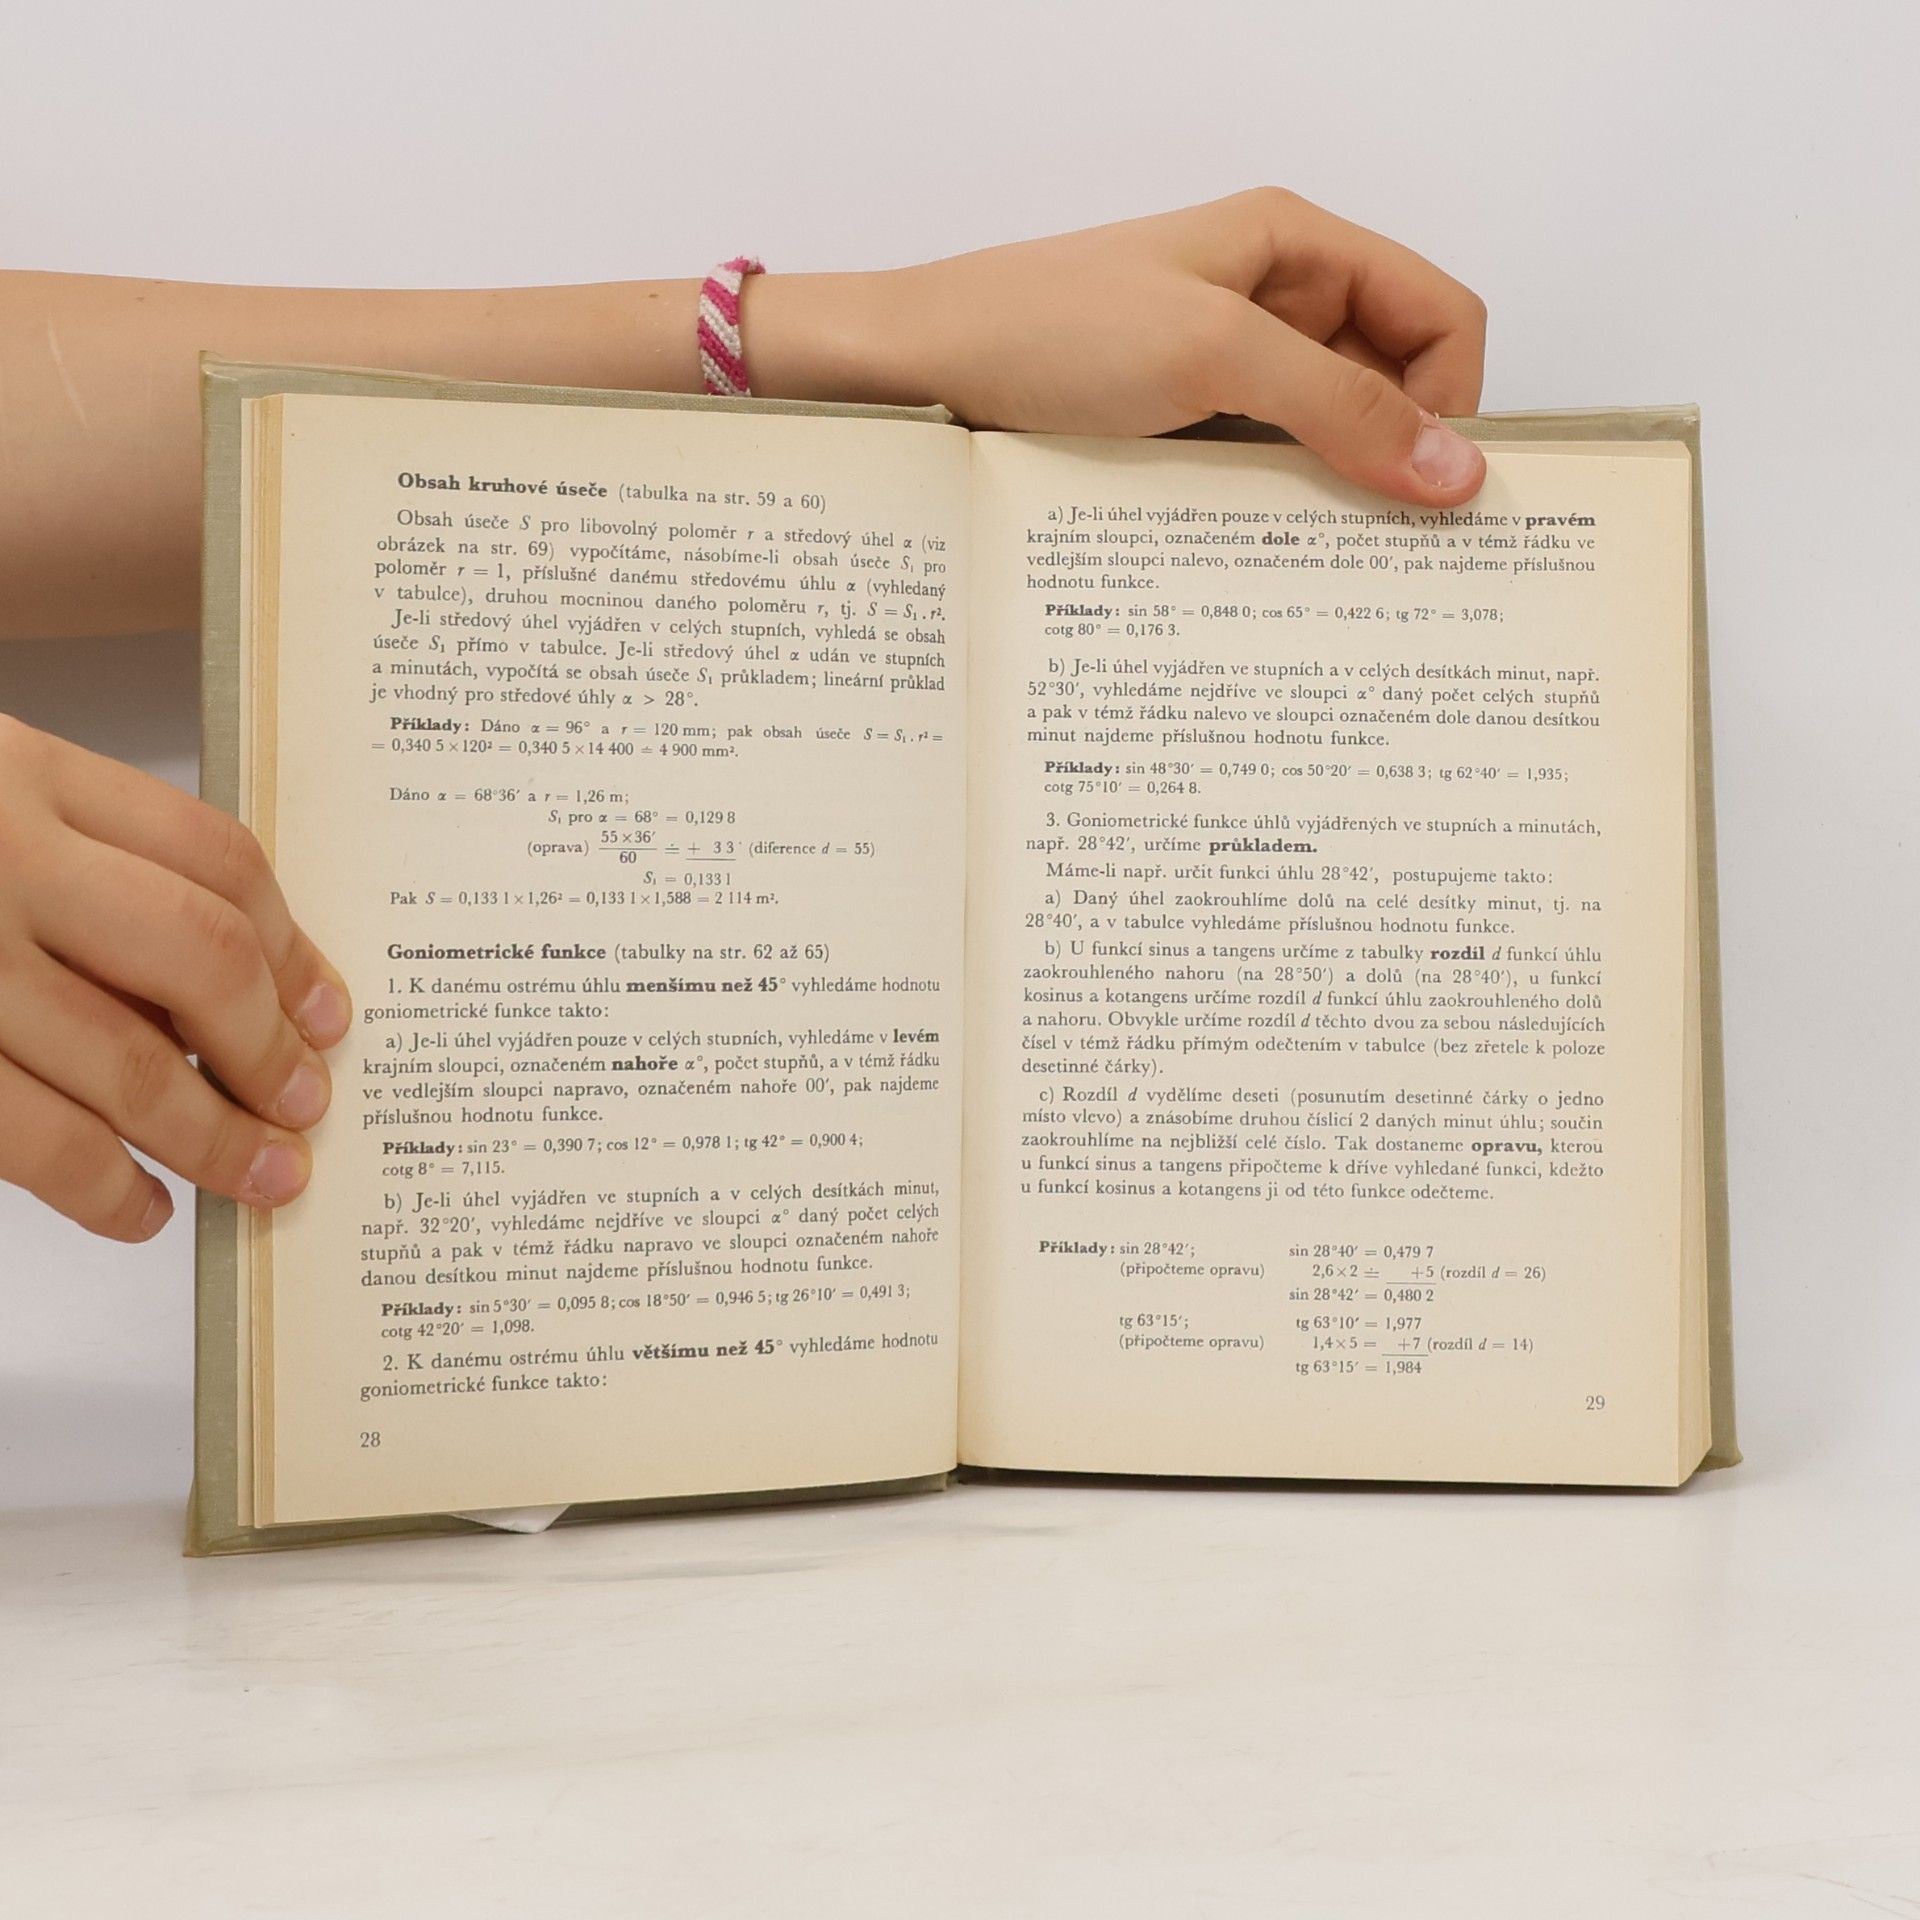 Obsah kruhové úseče (tabulka na str. 59 a 60)
Obsah úseče S pro libovolný poloměr r a středový úhel α (viz
obrázek na str. 69) vypočítáme, násobíme-li obsah úseče S₁ pro
poloměr r = 1, příslušné danému středovému úhlu α (vyhledaný
v tabulce), druhou mocninou daného poloměru r, tj. S = S₁ . r².
Je-li středový úhel vyjádřen v celých stupních, vyhledá se obsah
úseče S₁ přímo v tabulce. Je-li středový úhel α udán ve stupních
a minutách, vypočítá se obsah úseče S₁ průkladem; lineární průklad
je vhodný pro středové úhly α > 28°.
Příklady: Dáno α = 96° a r = 120 mm; pak obsah úseče S = S₁ . r² =
= 0,340 5 × 120² = 0,340 5 × 14 400 ≐ 4 900 mm².
Dáno α = 68°36′ a r = 1,26 m;
S₁ pro α = 68° = 0,129 8
55 × 36′
(oprava) ≐ + 3 3 (diference d = 55)
60
S₁ = 0,133 1
Pak S = 0,133 1 × 1,26² = 0,133 1 × 1,588 = 2 114 m².
Goniometrické funkce (tabulky na str. 62 až 65)
1. K danému ostrému úhlu menšímu než 45° vyhledáme hodnotu
goniometrické funkce takto:
a) Je-li úhel vyjádřen pouze v celých stupních, vyhledáme v levém
krajním sloupci, označeném nahoře α°, počet stupňů, a v témž řádku
ve vedlejším sloupci napravo, označeném nahoře 00′, pak najdeme
příslušnou hodnotu funkce.
Příklady: sin 23° = 0,390 7; cos 12° = 0,978 1; tg 42° = 0,900 4;
cotg 8° = 7,115.
b) Je-li úhel vyjádřen ve stupních a v celých desítkách minut,
např. 32°20′, vyhledáme nejdříve ve sloupci α° daný počet celých
stupňů a pak v témž řádku napravo ve sloupci označeném nahoře
danou desítkou minut najdeme příslušnou hodnotu funkce.
Příklady: sin 5°30′ = 0,095 8; cos 18°50′ = 0,946 5; tg 26°10′ = 0,491 3;
cotg 42°20′ = 1,098.
2. K danému ostrému úhlu většímu než 45° vyhledáme hodnotu
goniometrické funkce takto:
28
a) Je-li úhel vyjádřen pouze v celých stupních, vyhledáme v pravém
krajním sloupci, označeném dole α°, počet stupňů a v témž řádku ve
vedlejším sloupci nalevo, označeném dole 00′, pak najdeme příslušnou
hodnotu funkce.
Příklady: sin 58° = 0,848 0; cos 65° = 0,422 6; tg 72° = 3,078;
cotg 80° = 0,176 3.
b) Je-li úhel vyjádřen ve stupních a v celých desítkách minut, např.
52°30′, vyhledáme nejdříve ve sloupci α° daný počet celých stupňů
a pak v témž řádku nalevo ve sloupci označeném dole danou desítkou
minut najdeme příslušnou hodnotu funkce.
Příklady: sin 48°30′ = 0,749 0; cos 50°20′ = 0,638 3; tg 62°40′ = 1,935;
cotg 75°10′ = 0,264 8.
3. Goniometrické funkce úhlů vyjádřených ve stupních a minutách,
např. 28°42′, určíme průkladem.
Máme-li např. určit funkci úhlu 28°42′, postupujeme takto:
a) Daný úhel zaokrouhlíme dolů na celé desítky minut, tj. na
28°40′, a v tabulce vyhledáme příslušnou hodnotu funkce.
b) U funkcí sinus a tangens určíme z tabulky rozdíl d funkcí úhlu
zaokrouhleného nahoru (na 28°50′) a dolů (na 28°40′), u funkcí
kosinus a kotangens určíme rozdíl d funkcí úhlu zaokrouhleného dolů
a nahoru. Obvykle určíme rozdíl d těchto dvou za sebou následujících
čísel v témž řádku přímým odečtením v tabulce (bez zřetele k poloze
desetinné čárky).
c) Rozdíl d vydělíme deseti (posunutím desetinné čárky o jedno
místo vlevo) a znásobíme druhou číslicí 2 daných minut úhlu; součin
zaokrouhlíme na nejbližší celé číslo. Tak dostaneme opravu, kterou
u funkcí sinus a tangens připočteme k dříve vyhledané funkci, kdežto
u funkcí kosinus a kotangens ji od této funkce odečteme.
Příklady: sin 28°42′; sin 28°40′ = 0,479 7
(připočteme opravu) 2,6 × 2 ≐ +5 (rozdíl d = 26)
sin 28°42′ = 0,480 2
tg 63°15′; tg 63°10′ = 1,977
(připočteme opravu) 1,4 × 5 = +7 (rozdíl d = 14)
tg 63°15′ = 1,984
29